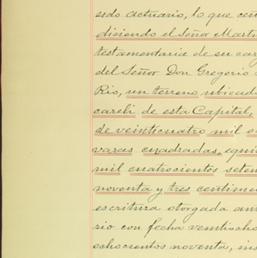 sedo actuario, lo que cer
diciendo el Señor Marti
testamentaria de su car
del Señor Don Gregorio
Rio, un terreno ubicado
careli de esta Capital,
de veinticuatro mil o
varas cuadradas, equi
mil cuatrocientos seten
noventa y tres centime
escritura otorgada an
rio con fecha veintiocho
ochocientos noventa, ins